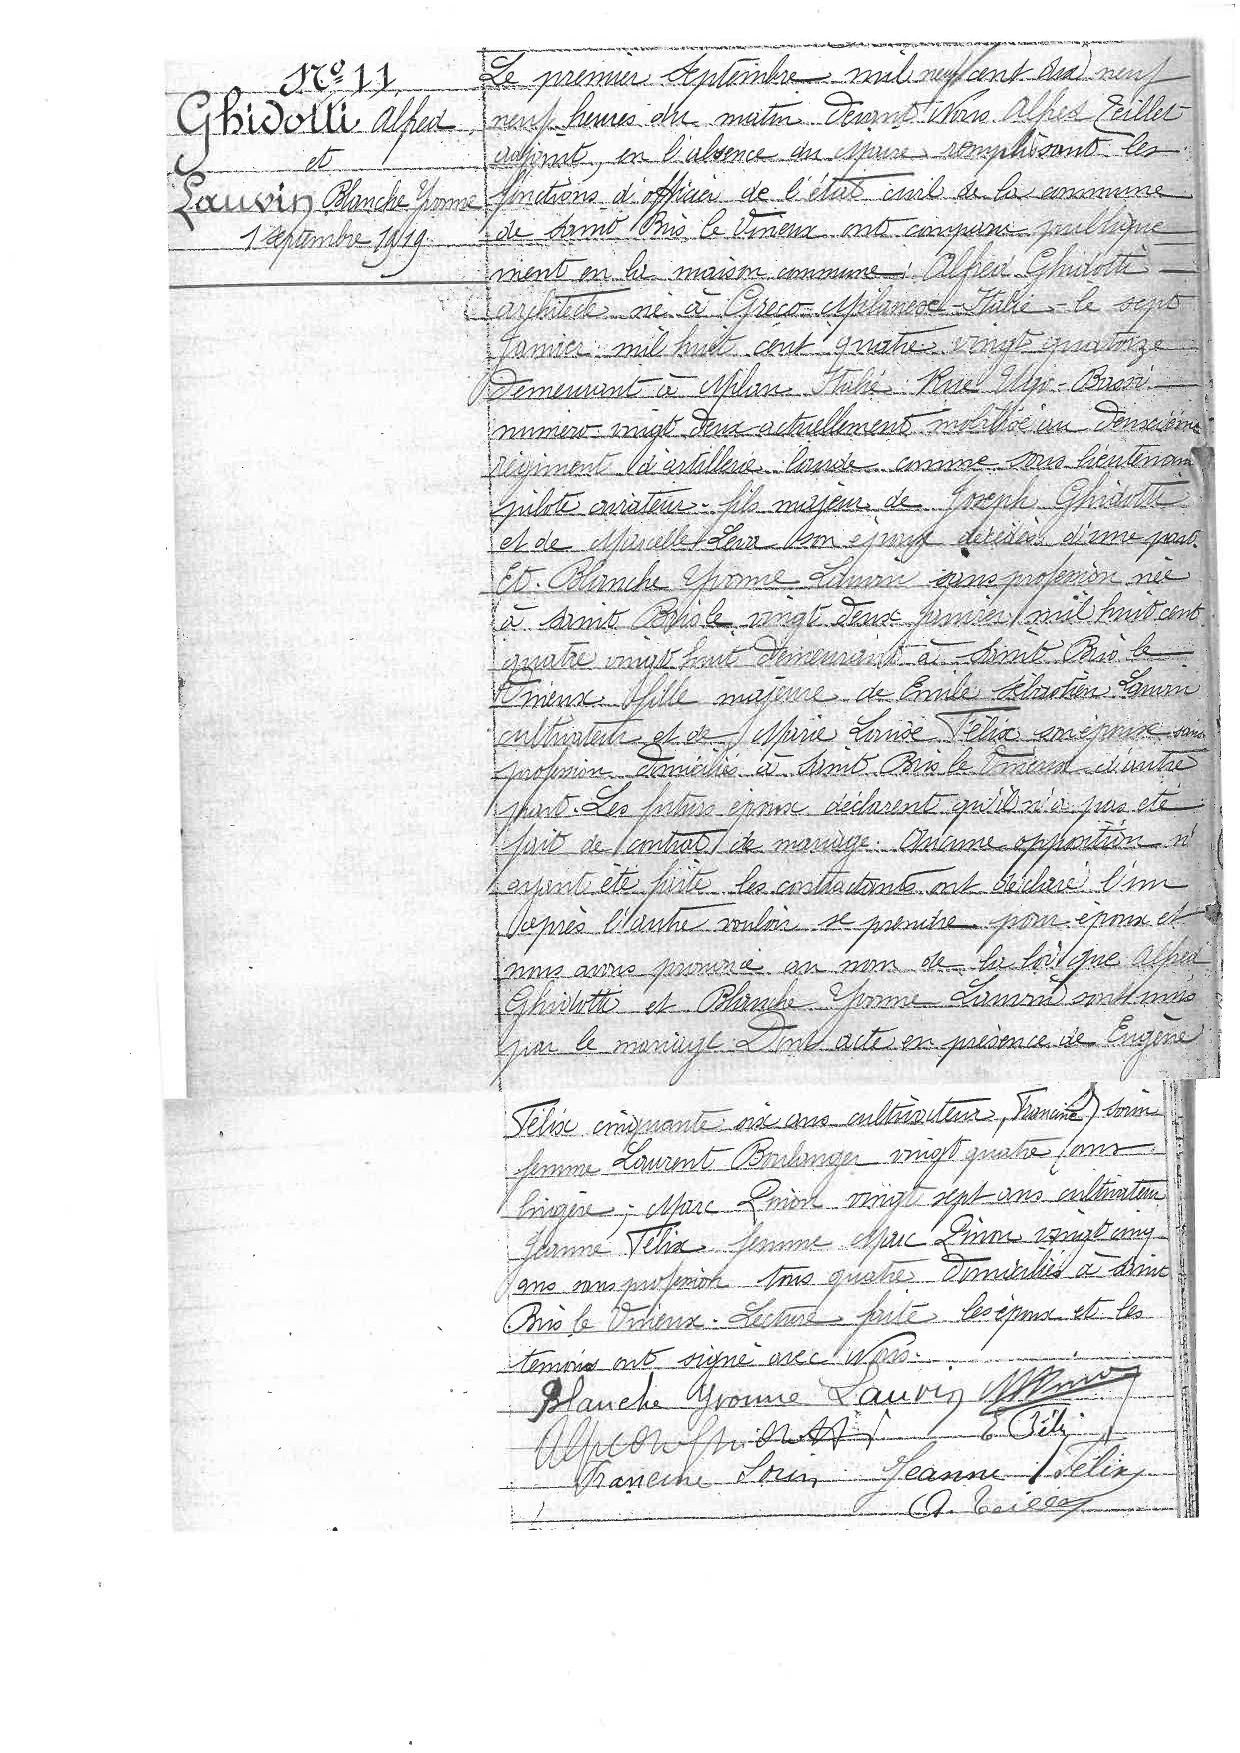 No 11
Ghidotti Alfred
et
Lauvin Blanche Yvonne
1 Septembre 1919
Le premier Septembre mil neuf cent dix neuf
neuf heures du matin devant Nous Alfred Teillet
adjoint, en l'absence du Maire remplissant les
fonctions d'officier de l'état civil de la commune
de Saint Bris le Vineux ont comparu publique
ment en la maison commune: Alfred Ghidotti
architecte né à Greco-Milanese-Italie-le sept
Janvier mil huit cent quatre vingt quatorze
demeurant à Milan Italie Rue Ugo-Bassi
numéro vingt deux actuellement mobilisé au deuxième
régiment d'artillerie lourde comme sous lieutenant
pilote aviateur - fils majeur de Joseph Ghidotti
et de Marcelle son époux décédés d'une part.
Et. Blanche Yvonne Lauvin sans profession née
à Saint Bris le vingt deux janvier mil huit cent
quatre vingt huit demeurant à Saint Bris le
Vineux fille majeure de Emile Sébastien Lauvin
cultivateur et de Marie Louise Félix son épouse sans
profession domiciliés à Saint Bris le Vineux d'autre
part. Les futurs époux déclarent qu'il n'a pas été
fait de contrat de mariage. Aucune opposition n'
ayant été faite les contractants ont déclaré l'un
après l'autre vouloir se prendre pour époux et
nous avons prononcé au nom de la loi que Alfred
Ghidotti et Blanche Yvonne Lauvin sont unis
par le mariage. Dont acte en présence de Eugène
Félix cinquante six ans cultivateur, Francine Sorin
femme Laurent Boulanger vingt quatre ans
lingère; Marc Pinon vingt sept ans cultivateur
Jeanne Félix femme Marc Pinon vingt cinq
ans sans profession tous quatre domiciliés à Saint
Bris le Vineux. Lecture faite les époux et les
témoins ont signé avec Nous.
Blanche Yvonne Lauvin
Alfredo Ghidotti E Félix
Francine Sorin Jeanne Félix
A. Teillet